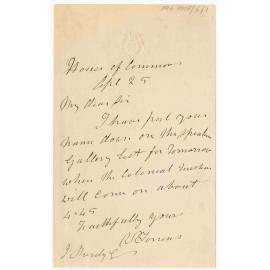 House of Commons
Apl 25
My dear Sir
I have put your
name down on the Speakers
Gallery list for tomorrow
when the Colonial
will come on about
4.45
Faithfully yours
R R Torrens